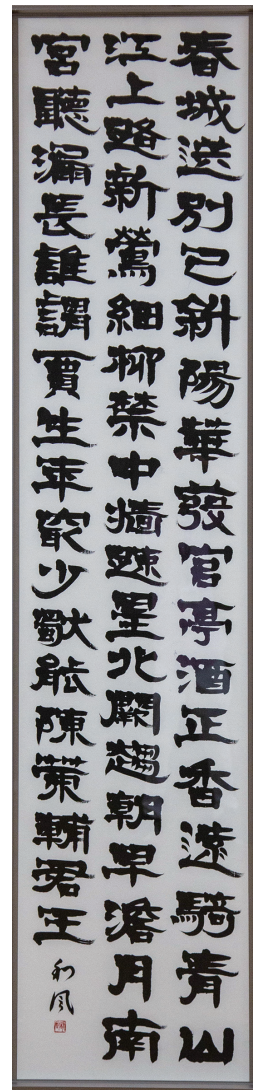 春城送別已斜陽華發官亭酒正香遠騎青山
江上路新鶯細柳禁中牆疎星北闕趨朝早澹月南
宮聽漏長誰謂賈生年最少獨能陳策輔君王
和風